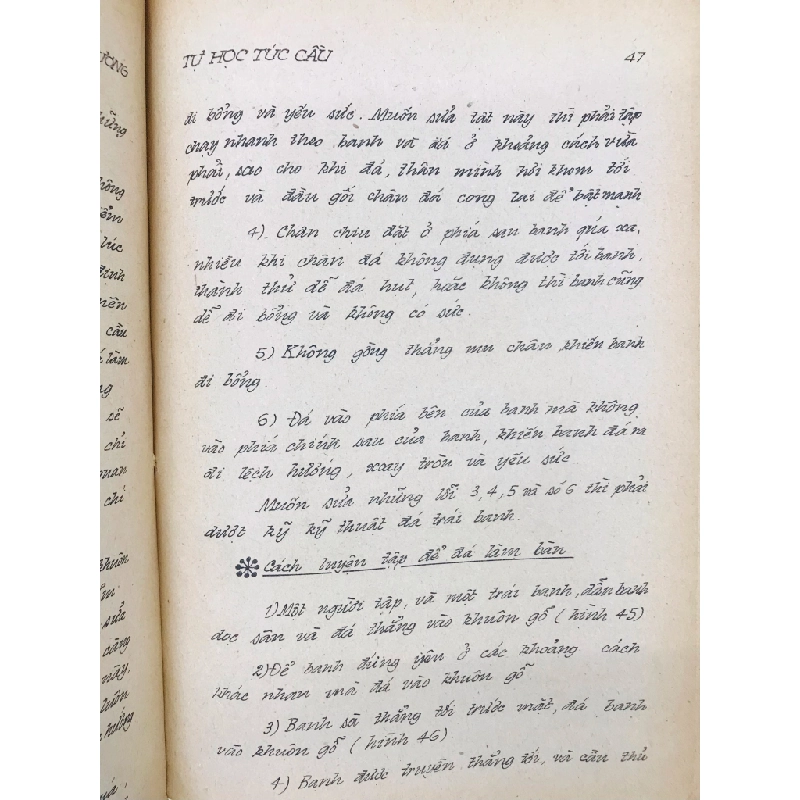 TỰ HỌC TÚC CẦU 47
đi bổng và yếu sức. Muốn sửa tật này thì phải tập
chạy nhanh theo banh và đi ở khoảng cách vừa
phải, sao cho khi đá, thân mình hơi khom tới
trước và đầu gối chân đá cong lại để bật mạnh
4). Chân chịu đặt ở phía sau banh quá xa,
nhiều khi chân đá không đụng được tới banh,
thành thử dễ đá hụt, hoặc không thì banh cũng
dễ đi bổng và không có sức.
5) Không gồng thẳng mu chân, khiến banh
đi bổng
6) Đá vào phía bên của banh mà không
vào phía chính sau của banh, khiến banh đá ra
đi lệch hướng, xoay tròn và yếu sức
Muốn sửa những lỗi 3, 4, 5 và số 6 thì phải
dượt kỹ kỹ thuật đá trái banh.
Cách luyện tập để đá làm bàn
1) Một người tập, với một trái banh, dẫn banh
dọc sân và đá thẳng vào khuôn gỗ (hình 45)
2) Để banh đứng yên ở các khoảng cách
khác nhau mà đá vào khuôn gỗ
3) Banh sà thẳng tới trước mặt, đá banh
vào khuôn gỗ (hình 46)
4) Banh được truyền thẳng tới, và cầu thủ
ƯƠNG
những
không
lúc
định
nên
cầu
làm
sẽ
chỉ
chỉ
khuôn
sửi
căng
này,
luôn